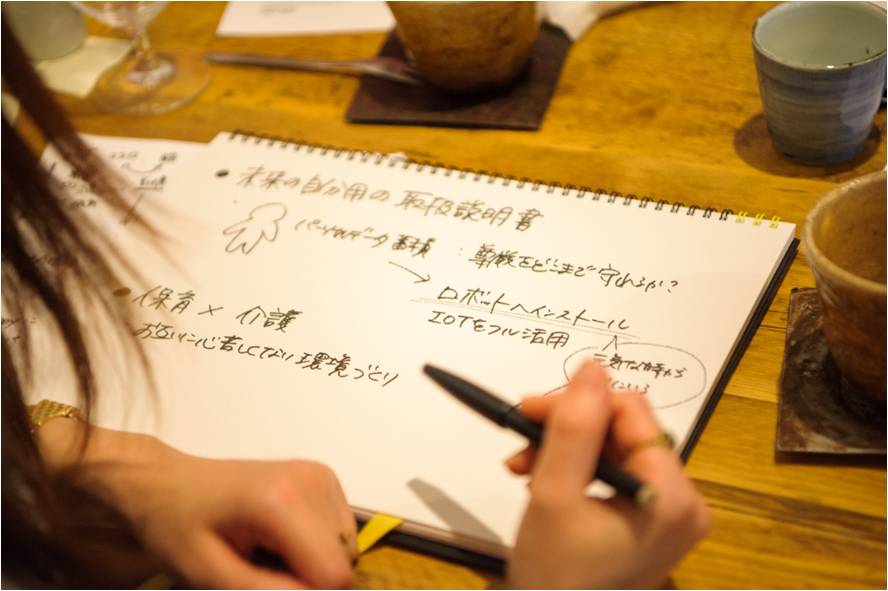 ● 未来の自分用の取扱説明書
パーソナルデータ蓄積 : 尊厳をどこまで守れるか?
→ ロボットへインストール
IOTをフル活用
元気な時から
● 保育 × 介護
お互いに心苦しくない環境づくり